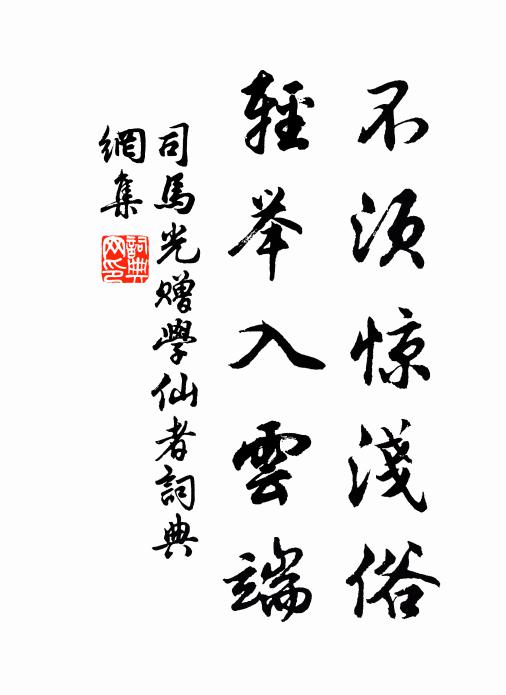 不须惊淺俗
輕举入雲端
司馬光赠學仙者詞典
網集
詞典网印